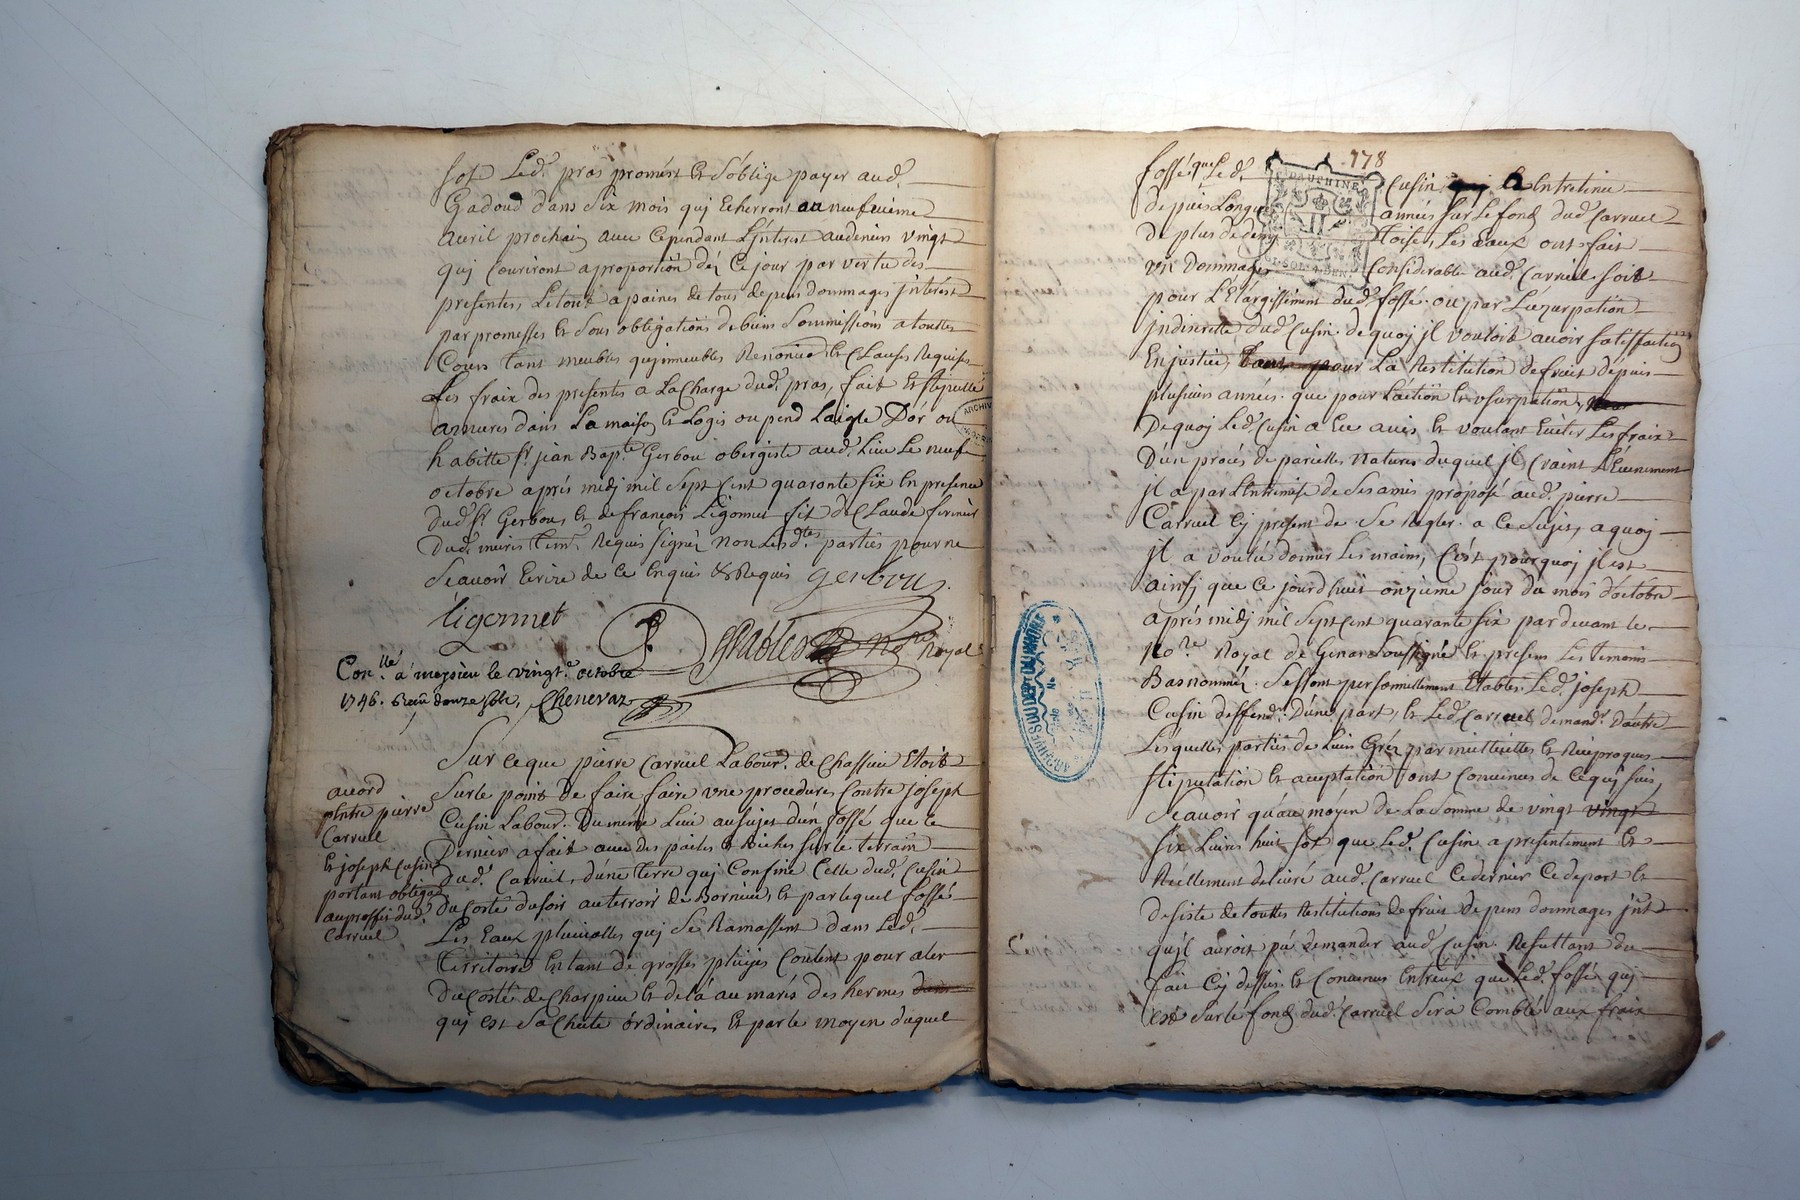 sol Led. pras promést Et s'oblige payer aud.
Gadoud dans Six mois quj Echerront au neufvieme
avril prochain avec Cependant L'jnterest audenier vingt
quj Couriront aproportion dez Ce jour par vertu des
presentes, Letout a paines de tous depens dommages jnterest
par promesses Et Sous obligations de biens Sommissions a touttes
Cours tant meubles qujmmeubles Renonciad. Et Clauses Requises
Les fraix des presentes a La Charge dud. pras, fait Et
dans La maison Et Logis ou pend Laigle D'ór ou
habitte Sr. jean Bapte. Gerbou obergiste aud. Lieu Le neufe
octobre aprés midj mil Sept Cent quarante Six En presence
dud. Sr. Gerbou, Et de francois Ligonnet fit de Claude
dud. Requis signéz non Lesdtes. parties pour ne
Scavoir Ecrire de Ce Enquis & Requis gerbou
ligonnet
Royal
Conllé. á meysieu le vingt. octobre
1746. Chenevaz
Sur Ce que pierre Carruel Labour. de Chassieu Etoit
Sur le point de faire faire vne procedure Contre joseph
Cusin Labour. Du méme Lieu au sujet d'un fossé que ce
Dernier a fait avec des pailes Et Biches Sur le terrain
dud. Carruel, d'une terre quj Confine Celle dud. Cusin
Du Costé du soir au terroir de Et par lequel fossé
Les Eaux pluvialles quj Se Ramassent dans Led.
territoire En tant de grosses plujes Coulent pour aler
du Costé de Charpieu Et de lá au marés des hermes
quj Est Sa Cheute órdinaire, Et par le moyen duquel
acord
Entre pierre
Carruel
Et joseph Cusin
portant obligaon
au proffit dud.
Carruel
178
fossé que Led. Cusin a Entretenu
depuis Longues années sur Le fond dud. Carruel
de plus de demj toise, Les Eaux ont fait
vn Dommage Considerable aud. Carruel soit
pour L'Elargissement dud. fossé, ou par L'ézurpation
jndirecte dud. Cusin. de quoj jl vouloit avoir satisfaction
En justice, pour La Restitution de fruit depuis
plusieurs années. que pour L'action Et vsurpation,
De quoj Led. Cusin a Eu avis Et voulant Eviter Les fraix
D'un procés de pareilles natures duquel jl Craint L'Evenement
jl a par L'Entremise de Ses amis proposé aud. pierre
Carruel Cj present de Se Regler a Ce Sujet, a quoj
jl a voulu donner Les mains, C'est pourquoj jl est
ainsj que Ce jourd'huit onzieme jour du mois d'octobre
aprés midj mil Sept Cent quarante Six par devant le
Nore. Royal de Genas Soussigné Et presens Les temoins
Bas nommez. Se sont personnellement Etablis Led. joseph
Cusin deffendr. D'une part, Et Led. Carruel demandr. D'autre
Lesquelles parties de Leurs Gréz par mutuelles Et Reciproques
stipulation Et aceptation, ont Convenus de Ce quj suit,
Scavoir qu'au moyen de La Somme de vingt vingt
Six Livres huit sol que Led. Cusin a presentement Et
Reellement delivré aud. Carruel Ce dernier Ce deport Et
desiste de touttes Restitutions de fruit depens dommages jnt
qu'jl auroit pû demander aud. Cusin Resultant du
fait Cj dessus. Et Convenus Entreux que Led. fossé quj
est Sur le fond dud. Carruel Sera Comblé aux fraix